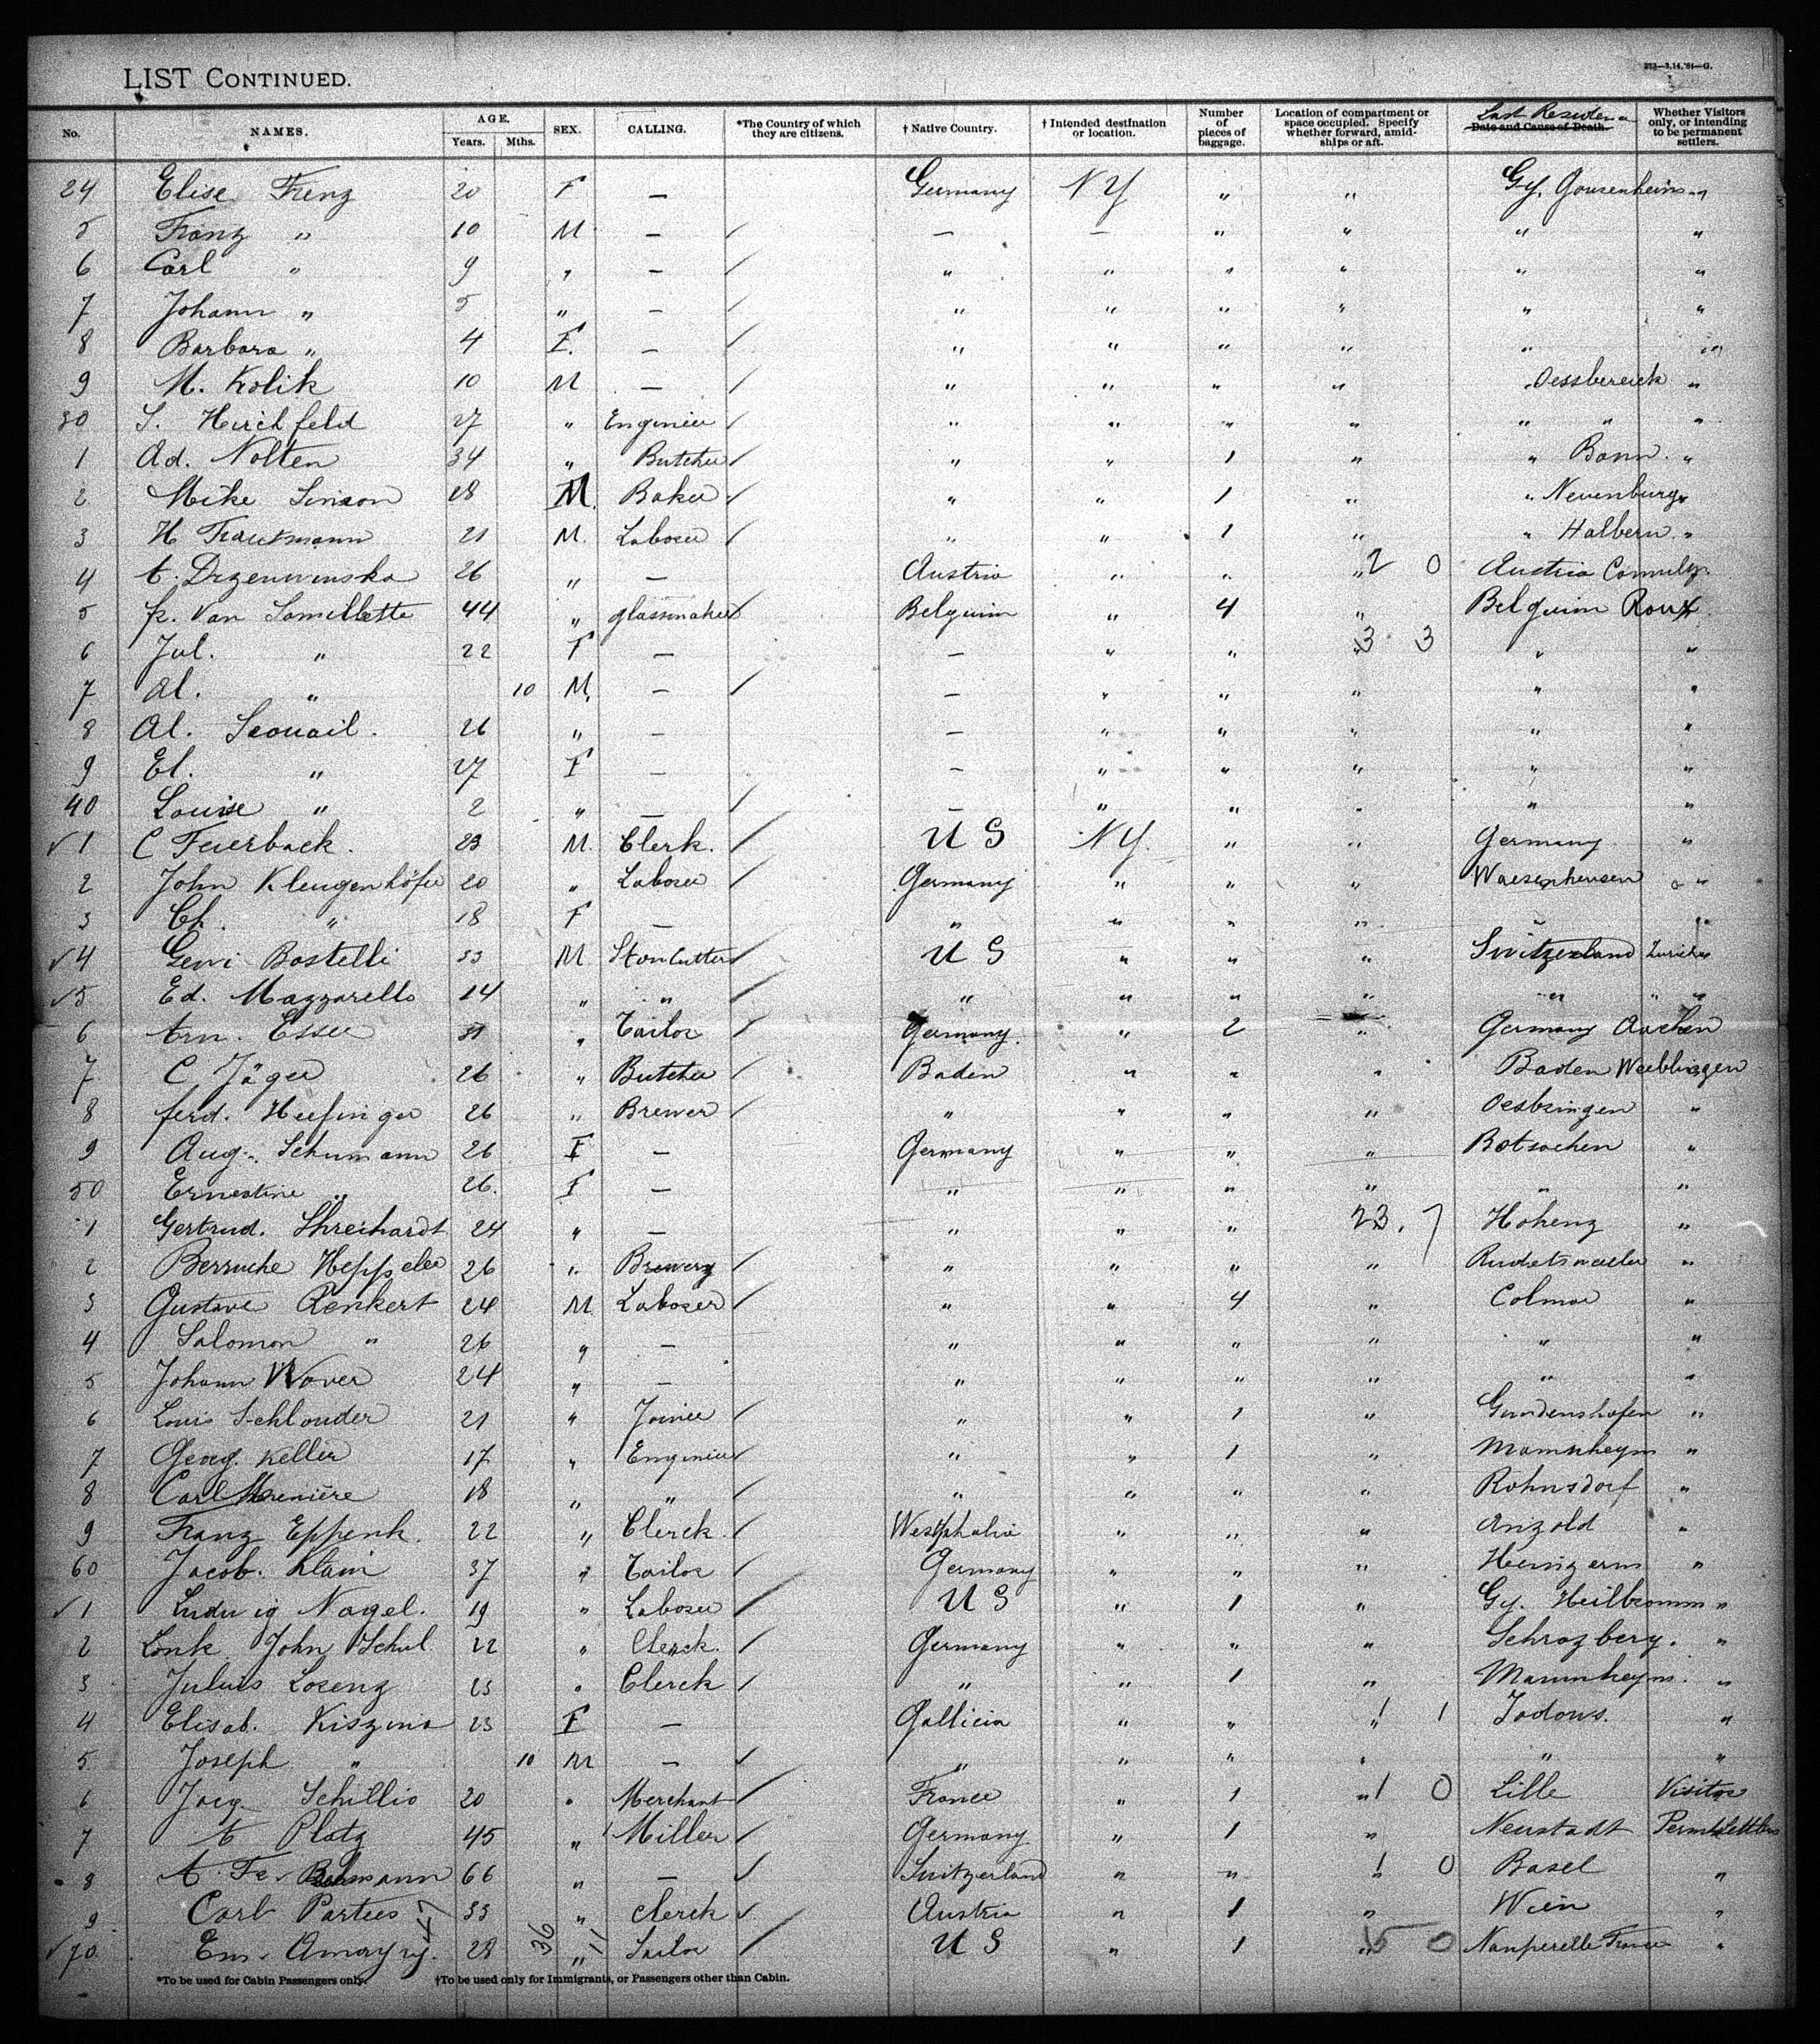 LIST CONTINUED.
373—3.14.'84—G.
No. NAMES. AGE. Years. Mths. SEX. CALLING. *The Country of which they are citizens. † Native Country. † Intended destination or location. Number of pieces of baggage. Location of compartment or space occupied. Specify whether forward, amidships or aft. Last Residen Date and Cause of Death. Whether Visitors only, or intending to be permanent settlers.
24 Elise Frenz 20 F — Germany NY " " Gy. Gousenheim "
5 Franz " 10 M — / — — " " " "
6 Carl " 9 " — / " " " " " "
7 Johann " 5 " — / " " " " " "
8 Barbara " 4 F. — / " " " " " "
9 M. Kolik 10 M — / " " " " " Oessbereick "
30 S. Hirchfeld 27 " Enginier / " " " " " " "
1 Ad. Nolten 34 " Butcher / " " 1 " " Bonn. "
2 Mike Simson 18 M. Baker / " " 1 " " Neuenburg "
3 H Trautmann 21 M. Laborer / " " 1 " " Halbern "
4 A. Drzenwinska 26 " — Austria " " " 2 0 Austria
5 fr. Van Lamellette 44 " glassmaker / Belguim " 4 " Belguim Roux
6 Jul. " 22 F — — " " " 3 3 " "
7 Al. " 10 M. — / — " " " " "
8 Al. 26 " — — " " " " "
9 El. " 27 F — — " " " " "
40 Louise " 2 " — / — " " " " "
✓1 C Feierback. 23 M. Clerk. / U S NY. " " Germany "
2 John Klengenhöfer 20 " Laborer / Germany " " " Waesenheusen "
3 Ch. " 18 F — " " " " " "
✓4 Gewi Bostelli 33 M. Stoncutter / U S " " " Switzerland Zurich "
✓5 Ed. Mazzarello 14 " " / " " " " " " "
6 Arn. Esser 31 " Tailor / Germany. " 2 " Germany Aachen
7 C Jäger 26 " Butcher / Baden " " " Baden Weeblingen
8 ferd. Heefinger 26 " Brewer / " " " " Oesbringen "
9 Aug. Schumann 26 F — Germany " " " Botsachen "
50 Ernestine " 26. F — " " " " " "
1 Gertrud. Shreihardt 24 " — " " " 23. 7 Hohenz "
2 Berruche Heppeler 26 " Brewery / " " " " Rudetsweeler "
3 Gustave Renkert 24 M. Laborer / " " 4 " Colmar "
4 Salomon " 26 " — " " " " " "
5 Johann Wover 24 " — " " " " " "
6 Louis Schlouder 21 " Joiner / " " 1 " Gundenshofen "
7 Georg. Keller 17 " Enginier / " " 1 " Mannheym "
8 Carl Mreniére 18 " " / " " " " Rohnsdorf "
9 Franz Eppenk. 22 " Clerck. / Westphalia " " " Anzold "
60 Jacob. Klain 37 " Tailor / Germany " " " "
✓1 Ludwig Nagel. 19 " Laborer / U S " 1 " Gy. Heilbronn "
2 Lonk John Schul. 22 " Clerck. / Germany " " " Schrozberg. "
3 Julius Lorenz 23 " Clerck / " " 1 " Mannheym. "
4 Elisab. Kiszina 23 F — Gallicia " " " 1 1 Jodows. "
5 Joseph " 10 M — ✓ " " " " " "
6 Jacq. Schillio 20 " Merchant / France " 1 " 1 0 Lille Visitor
7 A Platz 45 " Miller / Germany " 1 " Neustadt Permt Settlers
8 A. Fr. Behmann 66 " — ✓ Switzerland " " " 1 0 Basel "
9 Carl Partees 33 " Clerck ✓ Austria " 1 " Wien "
✓70. Em. Amayry. 47 28 36 " 11 Sailor / U S " 1 " 5 0 Nanperelle France "
*To be used for Cabin Passengers only. †To be used only for Immigrants, or Passengers other than Cabin.